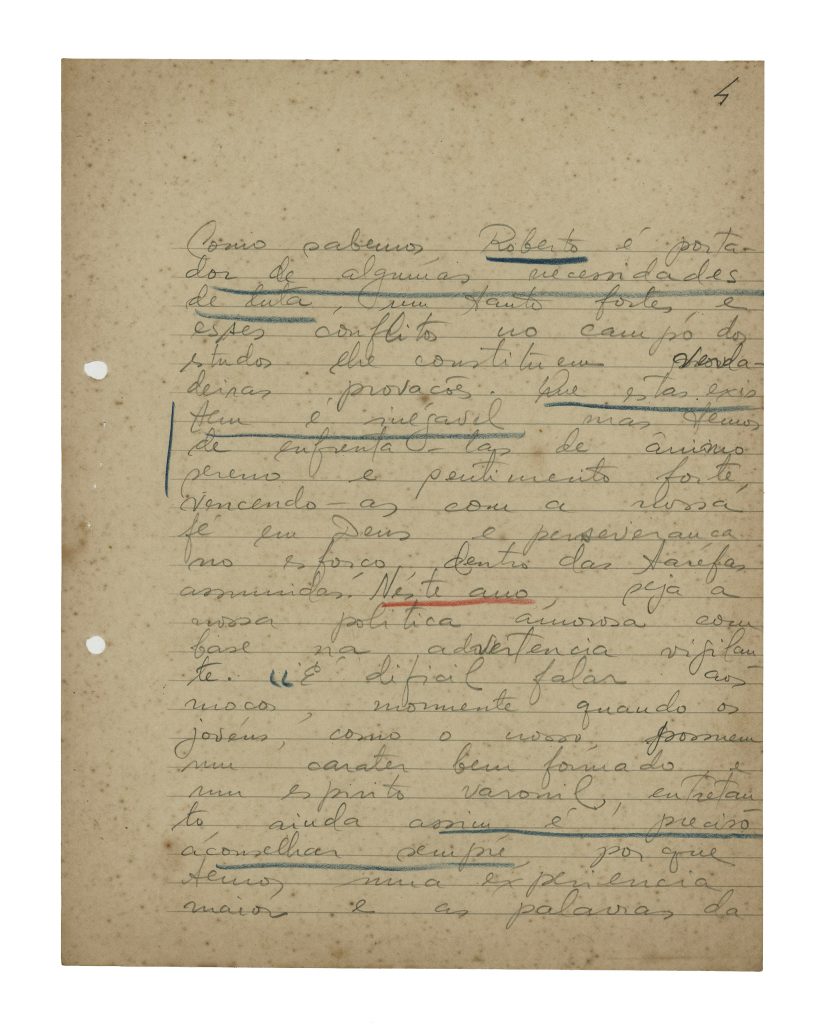 4
Como sabemos Roberto é porta-
dor de algumas necessidades
de luta, um tanto fortes e
esses conflitos no campo dos
estudos lhe constituem verda-
deiras provacões. Que estas exis
tem é inégavel mas temos
de enfrenta-las de ânimo
sereno e sentimento forte,
vencendo-as com a nossa
fé em Deus e perseveranca
no esforco, dentro das taréfas
assumidas. Néste ano, seja a
nossa politica amorosa com
base na advertencia vigilan
te. "É dificil falar aos
mocos, mormente quando os
jovéns, como o nosso possuem
um carater bem fórmado e
um espirito varonil, entretan
to ainda assim é preciso
aconselhar sempre por que
temos uma experiencia
maior e as palavras da